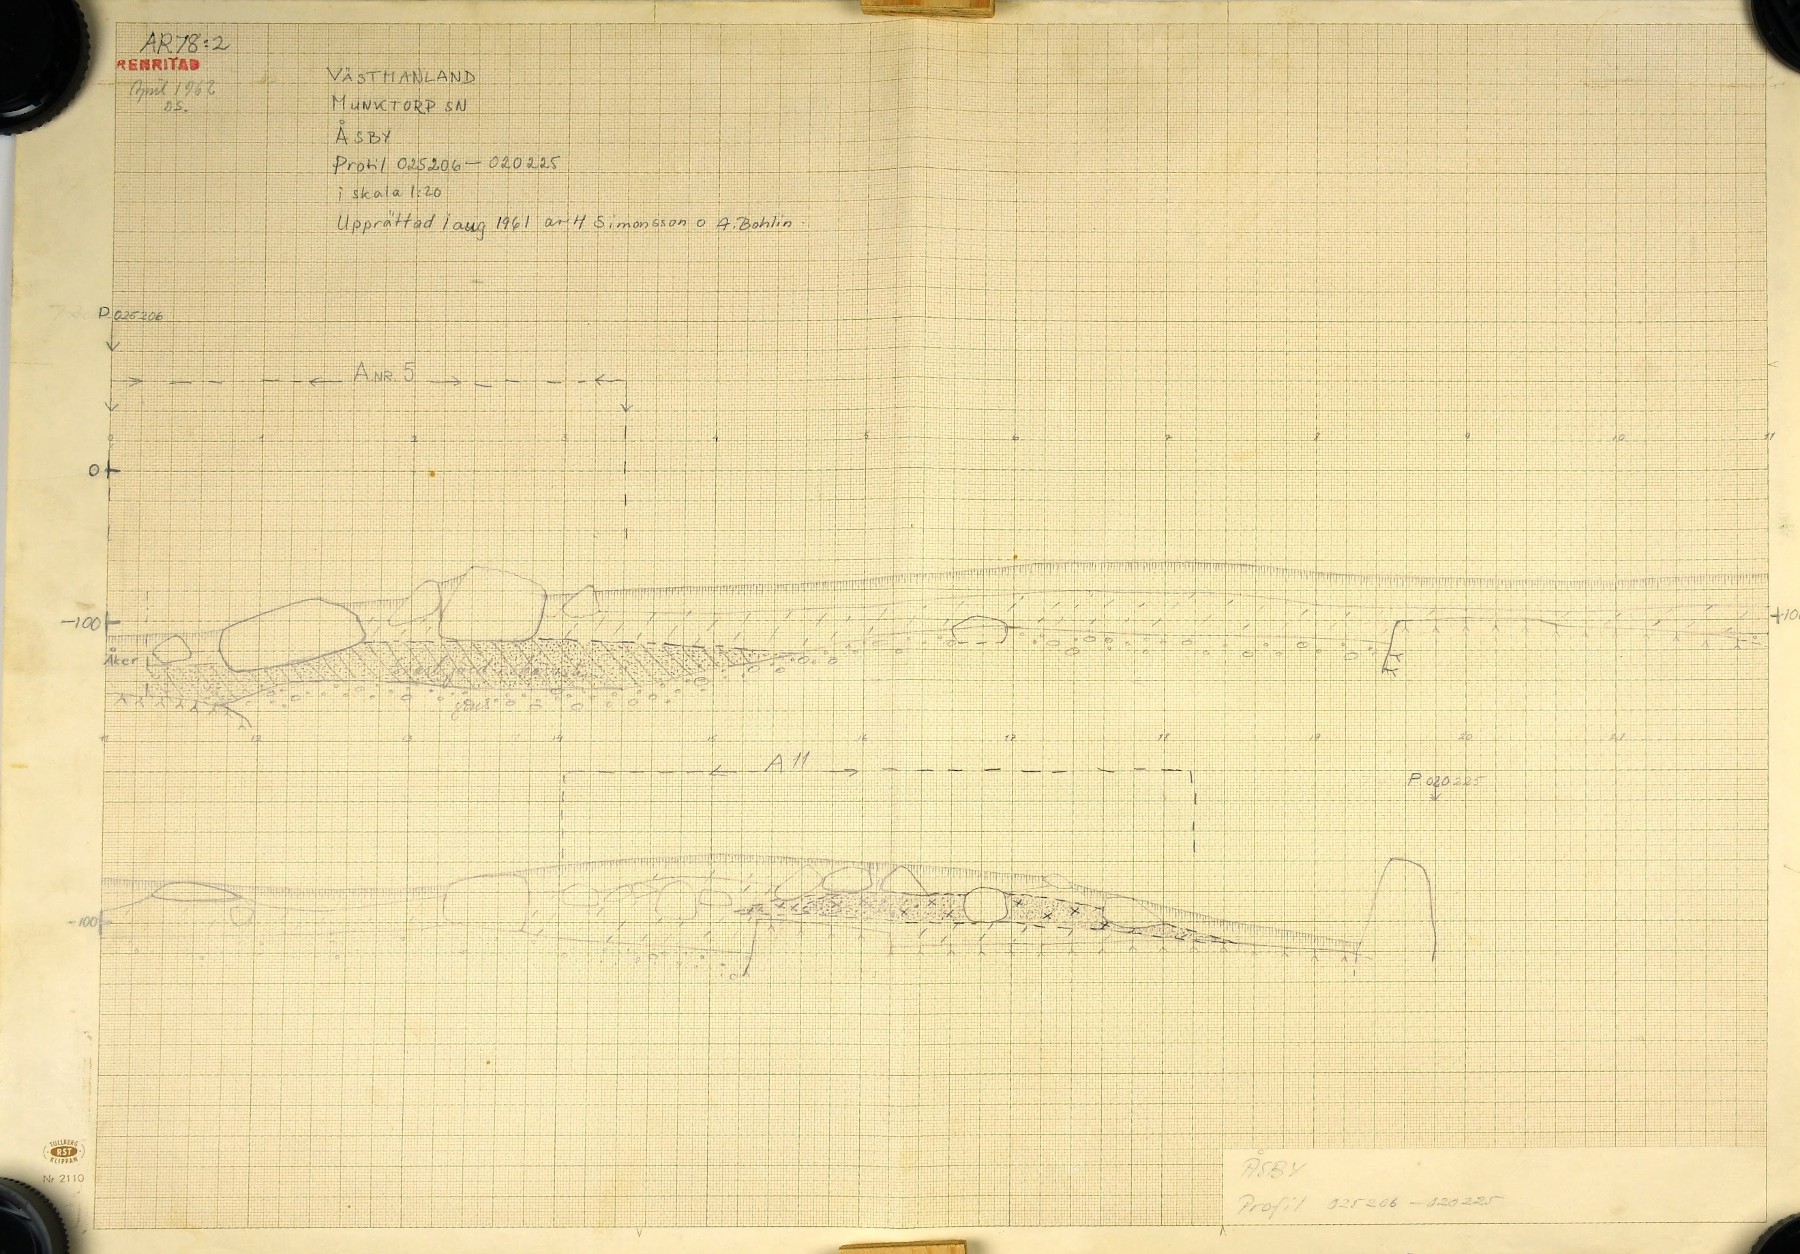 AR78:2
RENRITAD
April 1962
DS.
VÄSTMANLAND
MUNKTORP SN
ÅSBY
Profil 025206 — 020225
i skala 1:20
Upprättad i aug 1961 av H Simonsson o A. Bohlin
P 025206
A.NR. 5
0 1 2 3 4 5 6 7 8 9 10 11
0
-100
Åker
grus
11 12 13 14 15 16 17 18 19 20 21
A 11
P. 020225
-100
TULLBERG
RST
KLIPPAN
Nr 2110
ÅSBY
Profil 025206 - 020225